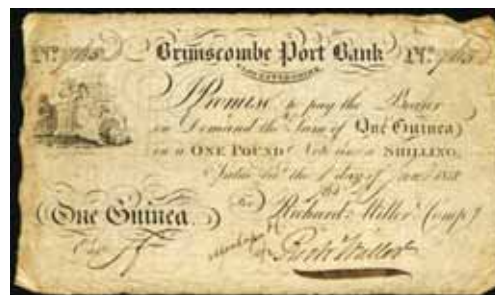 Nº 965 Brimscombe Port Bank Nº 965
GLOUCESTERSHIRE
I Promise to pay the Bearer
on Demand the Sum of One Guinea
in a ONE POUND Note and a SHILLING.
the 1 day of
One Guinea. For Richard Miller & Compy
Entd
Richd Miller